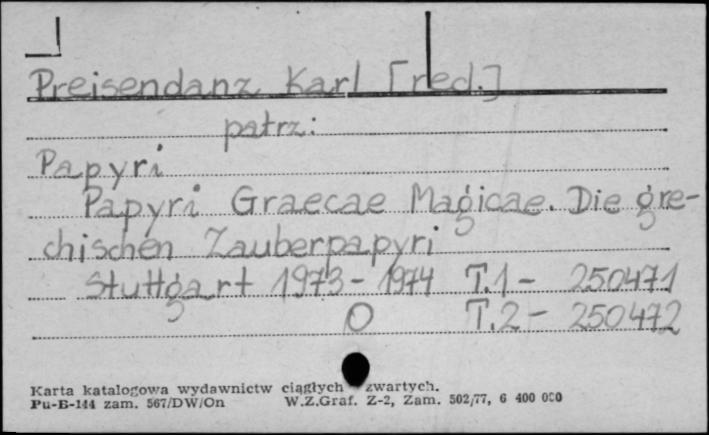 Preisendanz Karl [red.]
patrz:
Papyri
Papyri Graecae Magicae. Die gre-
chischen Zauberpapyri
Stuttgart 1973-1974 T.1- 250471
O T.2- 250472
Karta katalogowa wydawnictw ciągłych zwartych.
Pu-B-144 zam. 567/DW/On W.Z.Graf. Z-2, Zam. 502/77, 6 400 000